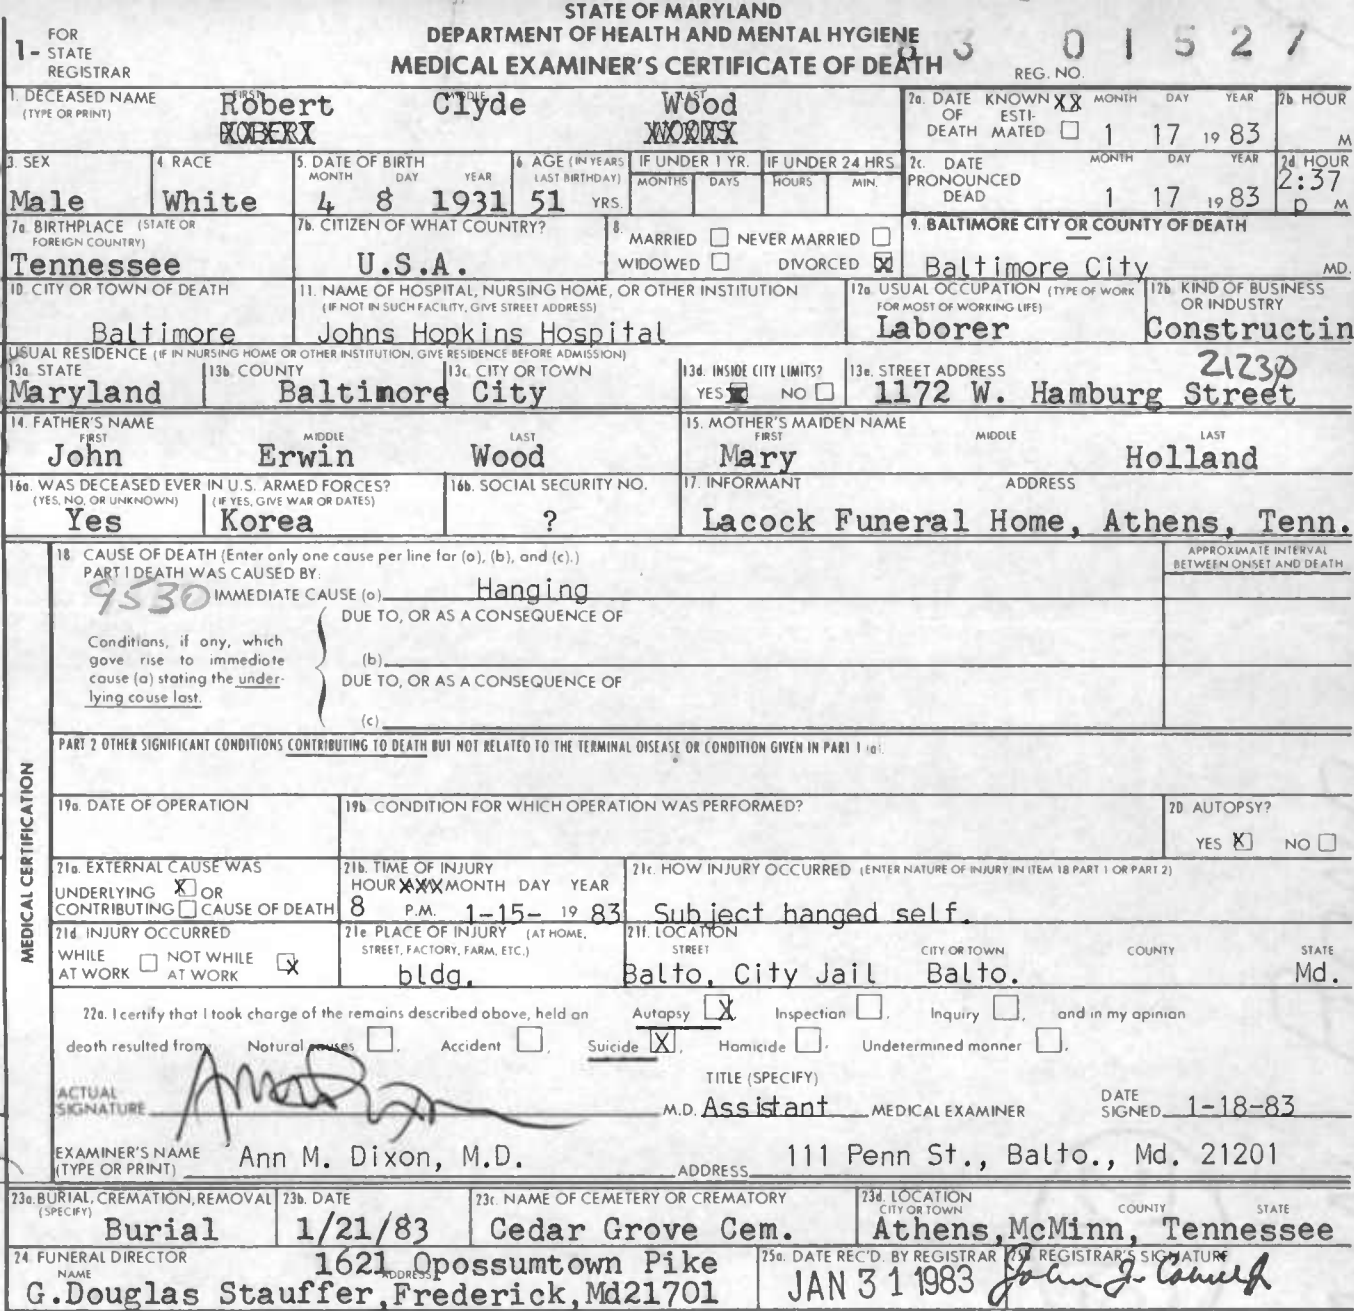 STATE OF MARYLAND
DEPARTMENT OF HEALTH AND MENTAL HYGIENE
MEDICAL EXAMINER'S CERTIFICATE OF DEATH
1- FOR STATE REGISTRAR
REG. NO. 83 01527
1. DECEASED NAME (TYPE OR PRINT) FIRST MIDDLE LAST
Robert Clyde Wood
2a. DATE OF DEATH KNOWN XX ESTIMATED MONTH DAY YEAR
1 17 1983
2b. HOUR M
3. SEX Male
4. RACE White
5. DATE OF BIRTH MONTH DAY YEAR
4 8 1931
6. AGE (IN YEARS LAST BIRTHDAY) 51 YRS.
IF UNDER 1 YR. MONTHS DAYS
IF UNDER 24 HRS HOURS MIN.
2c. DATE PRONOUNCED DEAD MONTH DAY YEAR
1 17 1983
2d. HOUR 2:37 p M
7a. BIRTHPLACE (STATE OR FOREIGN COUNTRY)
Tennessee
7b. CITIZEN OF WHAT COUNTRY?
U.S.A.
8. MARRIED NEVER MARRIED
WIDOWED DIVORCED X
9. BALTIMORE CITY OR COUNTY OF DEATH
Baltimore City MD.
10. CITY OR TOWN OF DEATH
Baltimore
11. NAME OF HOSPITAL, NURSING HOME, OR OTHER INSTITUTION
(IF NOT IN SUCH FACILITY, GIVE STREET ADDRESS)
Johns Hopkins Hospital
12a. USUAL OCCUPATION (TYPE OF WORK FOR MOST OF WORKING LIFE)
Laborer
12b. KIND OF BUSINESS OR INDUSTRY
Constructin
USUAL RESIDENCE (IF IN NURSING HOME OR OTHER INSTITUTION, GIVE RESIDENCE BEFORE ADMISSION)
13a. STATE Maryland
13b. COUNTY 13c. CITY OR TOWN
Baltimore City
13d. INSIDE CITY LIMITS? YES X NO
13e. STREET ADDRESS 21230
1172 W. Hamburg Street
14. FATHER'S NAME FIRST MIDDLE LAST
John Erwin Wood
15. MOTHER'S MAIDEN NAME FIRST MIDDLE LAST
Mary Holland
16a. WAS DECEASED EVER IN U.S. ARMED FORCES?
(YES, NO, OR UNKNOWN) (IF YES, GIVE WAR OR DATES)
Yes Korea
16b. SOCIAL SECURITY NO.
?
17. INFORMANT ADDRESS
Lacock Funeral Home, Athens, Tenn.
MEDICAL CERTIFICATION
18 CAUSE OF DEATH (Enter only one cause per line for (a), (b), and (c).)
PART I DEATH WAS CAUSED BY:
9530 IMMEDIATE CAUSE (a) Hanging
APPROXIMATE INTERVAL BETWEEN ONSET AND DEATH
DUE TO, OR AS A CONSEQUENCE OF
Conditions, if any, which
gave rise to immediate
cause (a) stating the under-
lying cause last.
(b)
DUE TO, OR AS A CONSEQUENCE OF
(c)
PART 2 OTHER SIGNIFICANT CONDITIONS CONTRIBUTING TO DEATH BUT NOT RELATED TO THE TERMINAL DISEASE OR CONDITION GIVEN IN PART 1 (a)
19a. DATE OF OPERATION
19b. CONDITION FOR WHICH OPERATION WAS PERFORMED?
20 AUTOPSY?
YES X NO
21a. EXTERNAL CAUSE WAS
UNDERLYING X OR
CONTRIBUTING CAUSE OF DEATH
21b. TIME OF INJURY
HOUR MONTH DAY YEAR
8 P.M. 1-15- 19 83
21c. HOW INJURY OCCURRED (ENTER NATURE OF INJURY IN ITEM 18 PART 1 OR PART 2)
Subject hanged self.
21d. INJURY OCCURRED
WHILE AT WORK NOT WHILE AT WORK X
21e PLACE OF INJURY (AT HOME, STREET, FACTORY, FARM, ETC.)
bldg.
21f. LOCATION
STREET CITY OR TOWN COUNTY STATE
Balto, City Jail Balto. Md.
22a. I certify that I took charge of the remains described above, held an Autopsy X Inspection , Inquiry , and in my opinion
death resulted from Natural causes , Accident , Suicide X , Homicide , Undetermined manner .
ACTUAL SIGNATURE
TITLE (SPECIFY)
M.D. Assistant MEDICAL EXAMINER
DATE SIGNED 1-18-83
EXAMINER'S NAME (TYPE OR PRINT) Ann M. Dixon, M.D.
ADDRESS 111 Penn St., Balto., Md. 21201
23a. BURIAL, CREMATION, REMOVAL (SPECIFY)
Burial
23b. DATE
1/21/83
23c. NAME OF CEMETERY OR CREMATORY
Cedar Grove Cem.
23d. LOCATION CITY OR TOWN COUNTY STATE
Athens, McMinn, Tennessee
24 FUNERAL DIRECTOR
NAME ADDRESS
1621 Opossumtown Pike
G.Douglas Stauffer, Frederick, Md21701
25a. DATE REC'D. BY REGISTRAR
JAN 31 1983
25b. REGISTRAR'S SIGNATURE